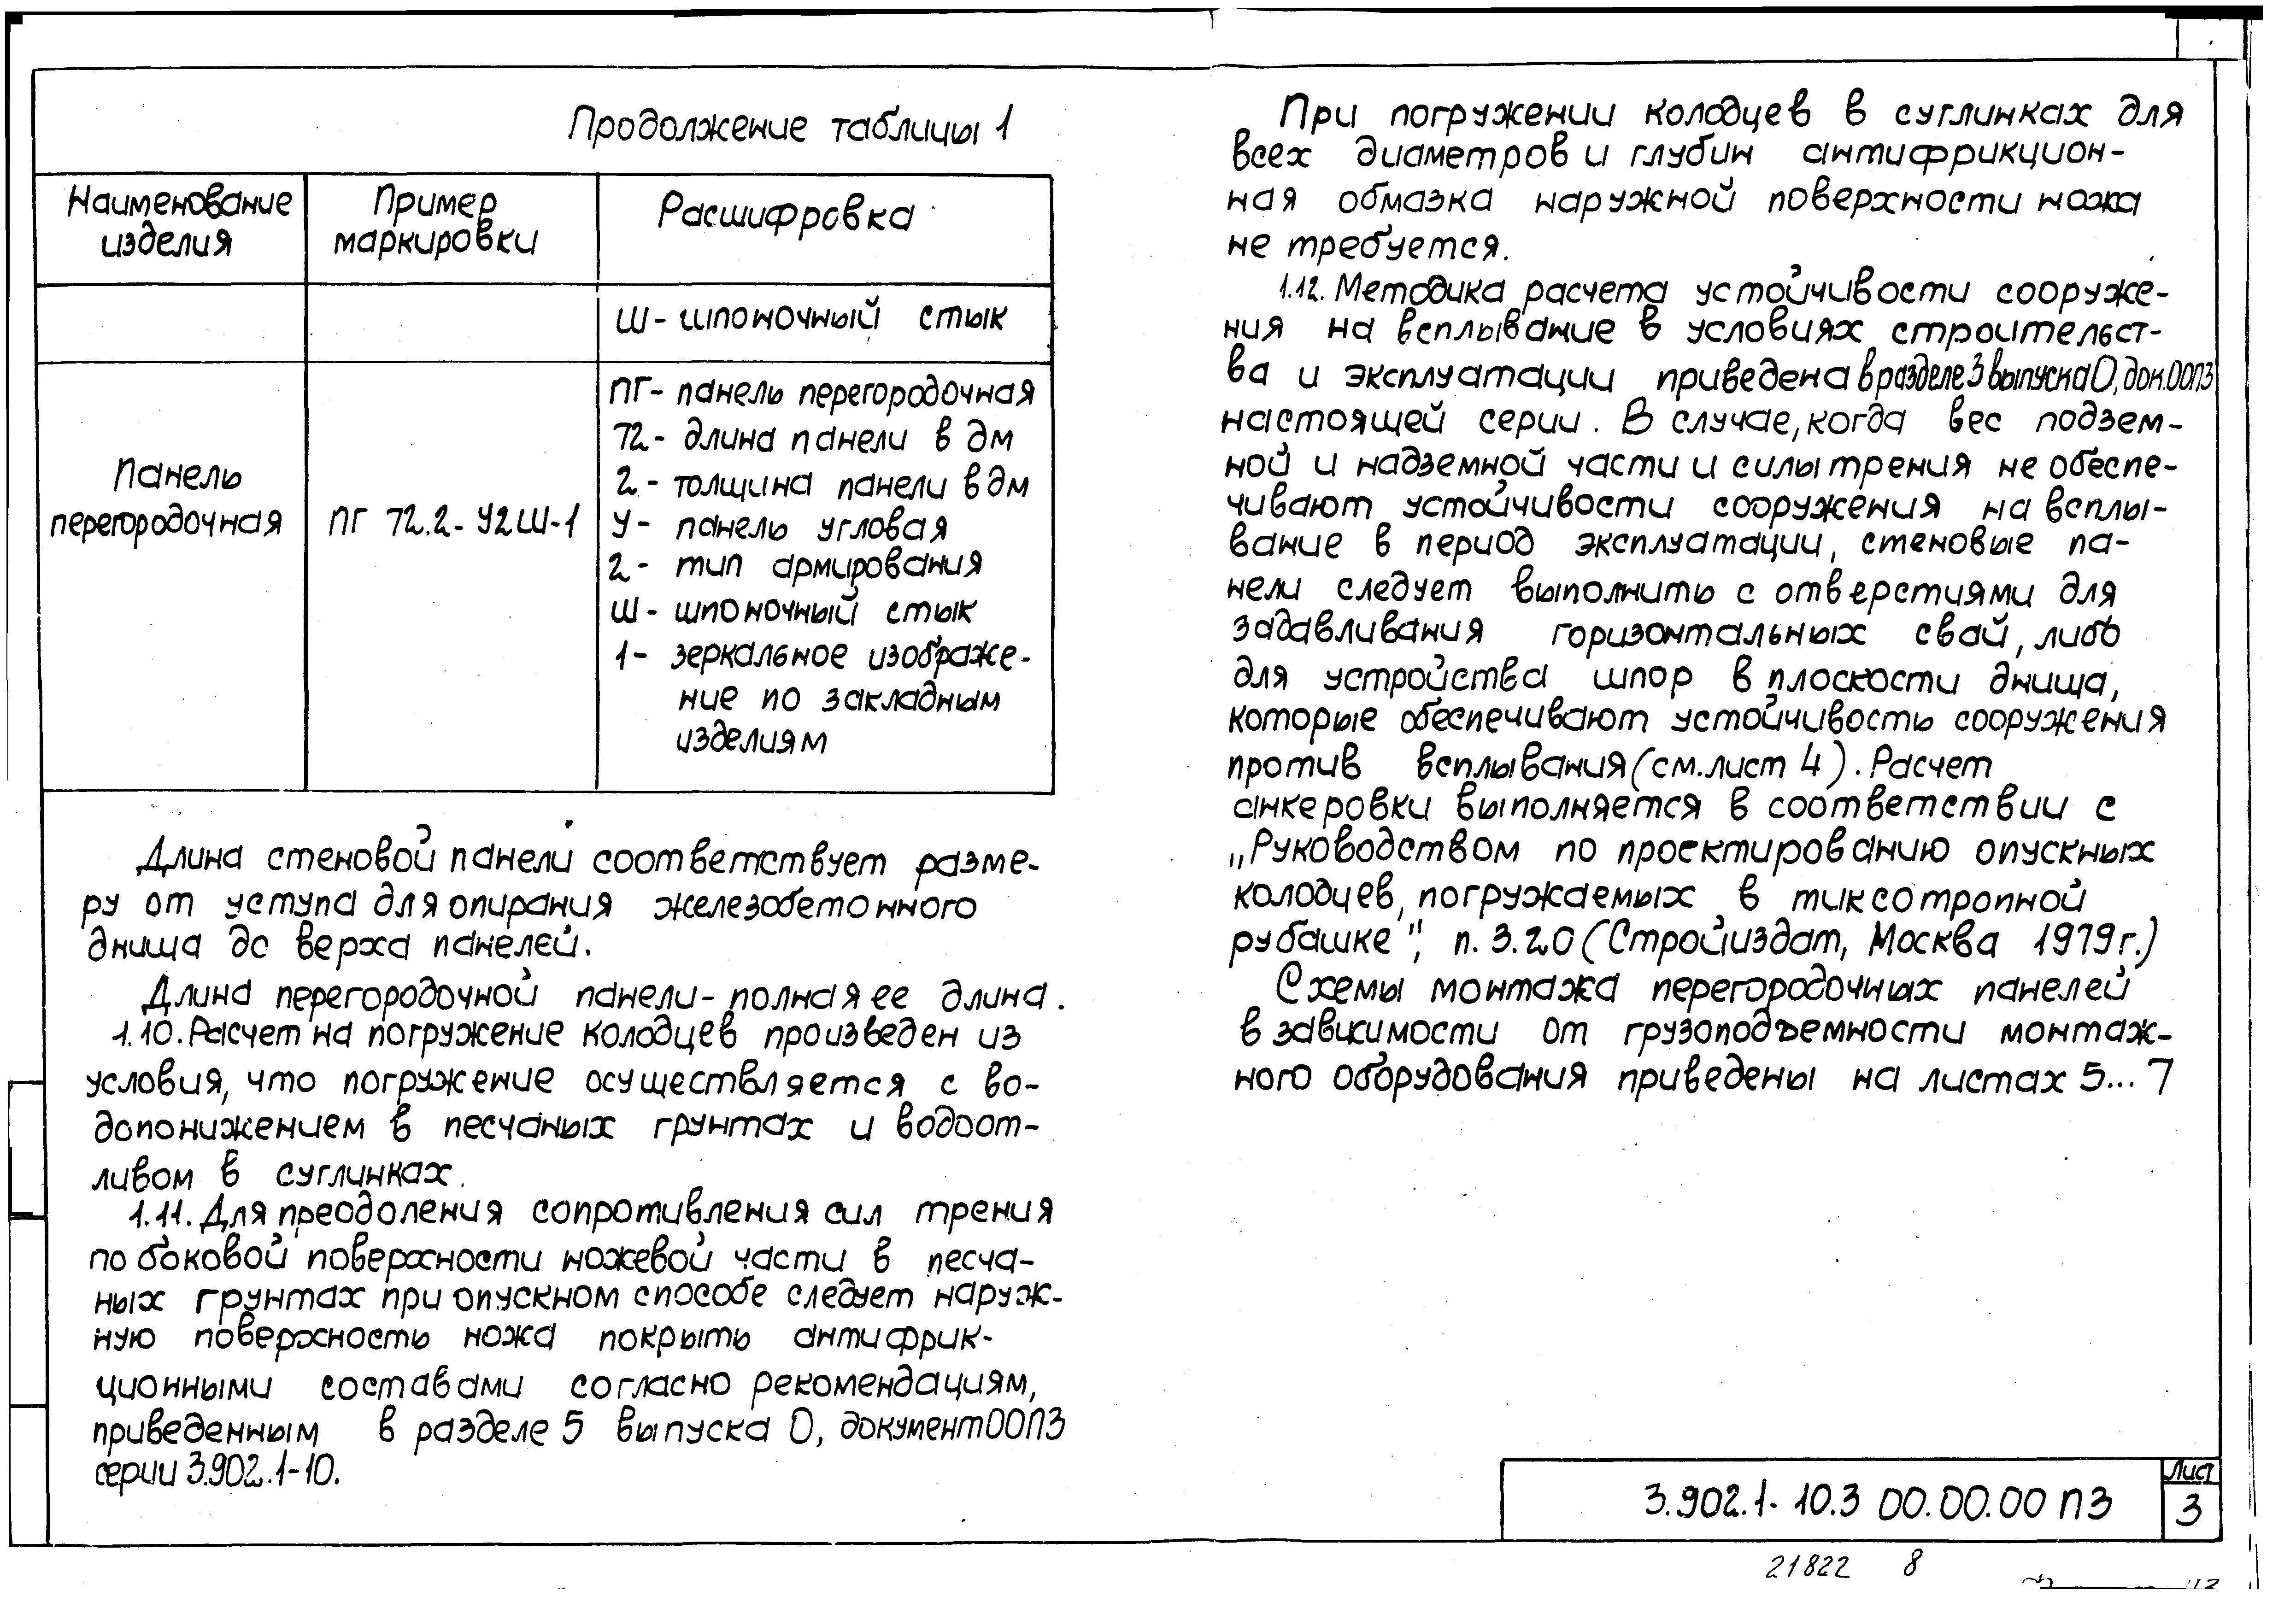 Продолжение таблицы 1
Наименование
изделия
Пример
маркировки
Расшифровка
Ш- шпоночный стык
Панель
перегородочная
ПГ 72.2- У2Ш-1
ПГ- панель перегородочная
72- длина панели в дм
2- толщина панели в дм
У- панель угловая
2- тип армирования
Ш- шпоночный стык
1- зеркальное изображе-
ние по закладным
изделиям
Длина стеновой панели соответствует разме-
ру от уступа для опирания железобетонного
днища до верха панелей.
Длина перегородочной панели- полная ее длина.
1.10. Расчет на погружение колодцев произведен из
условия, что погружение осуществляется с во-
допонижением в песчаных грунтах и водоот-
ливом в суглинках.
1.11. Для преодоления сопротивления сил трения
по боковой поверхности ножевой части в песча-
ных грунтах при опускном способе следует наруж-
ную поверхность ножа покрыть антифрик-
ционными составами согласно рекомендациям,
приведенным в разделе 5 выпуска 0, документ 00ПЗ
серии 3.902.1-10.
При погружении колодцев в суглинках для
всех диаметров и глубин антифрикцион-
ная обмазка наружной поверхности ножа
не требуется.
1.12. Методика расчета устойчивости сооруже-
ния на всплывание в условиях строительст-
ва и эксплуатации приведена в разделе 3 выпуска 0, док. 00ПЗ
настоящей серии. В случае, когда вес подзем-
ной и надземной части и силы трения не обеспе-
чивают устойчивости сооружения на всплы-
вание в период эксплуатации, стеновые па-
нели следует выполнить с отверстиями для
задавливания горизонтальных свай, либо
для устройства шпор в плоскости днища,
которые обеспечивают устойчивость сооружения
против всплывания (см. лист 4). Расчет
анкеровки выполняется в соответствии с
„Руководством по проектированию опускных
колодцев, погружаемых в тиксотропной
рубашке", п. 3.20 (Стройиздат, Москва 1979 г.)
Схемы монтажа перегородочных панелей
в зависимости от грузоподъемности монтаж-
ного оборудования приведены на листах 5...7
3.902.1- 10.3 00.00.00 ПЗ
Лист
3
21822 8